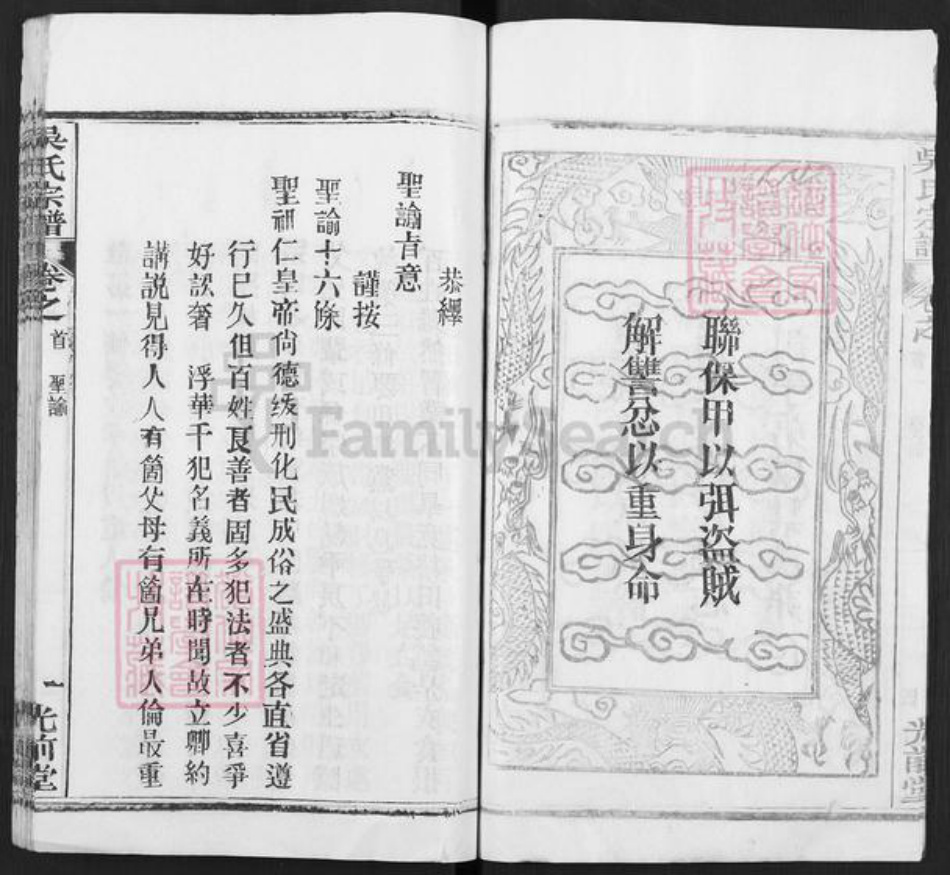 聯保甲以弭盜賊
解讐忿以重身命
恭繹
聖諭旨意
謹按
聖諭十六條
聖祖仁皇帝尙德緩刑化民成俗之盛典各直省遵
行已久但百姓良善者固多犯法者不少喜爭
好訟奢 浮華干犯名義所在時聞故立鄉約
講說見得人人有箇父母有箇兄弟人倫最重
吳氏宗譜 卷之首 聖諭 一 光前堂
FamilySearch